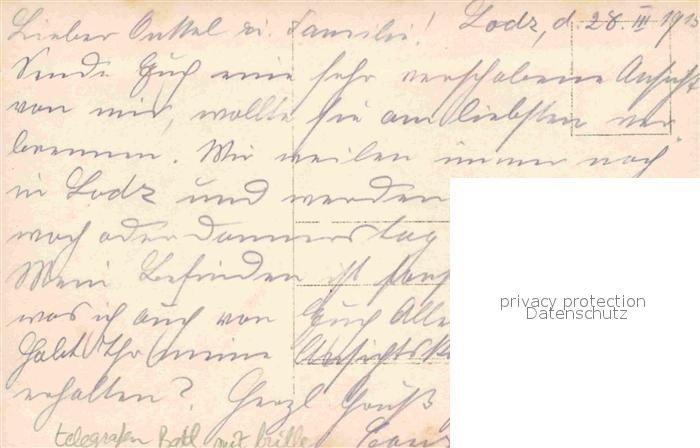 Lieber Onkel u. Familie! Lodz, d. 28. III 1915
Sende Euch eine sehr verschobene Ansicht
von mir, wollte sie am liebsten ver
brennen. Wir weilen immer noch
in Lodz und werden
woch oder Donnerstag
Mein Befinden ist
was ich auch von Euch Alle
Habt Ihr meine Ansichtsk
erhalten? Herzl Gruß
telegrafen Batl mit Brille
privacy protection
Datenschutz